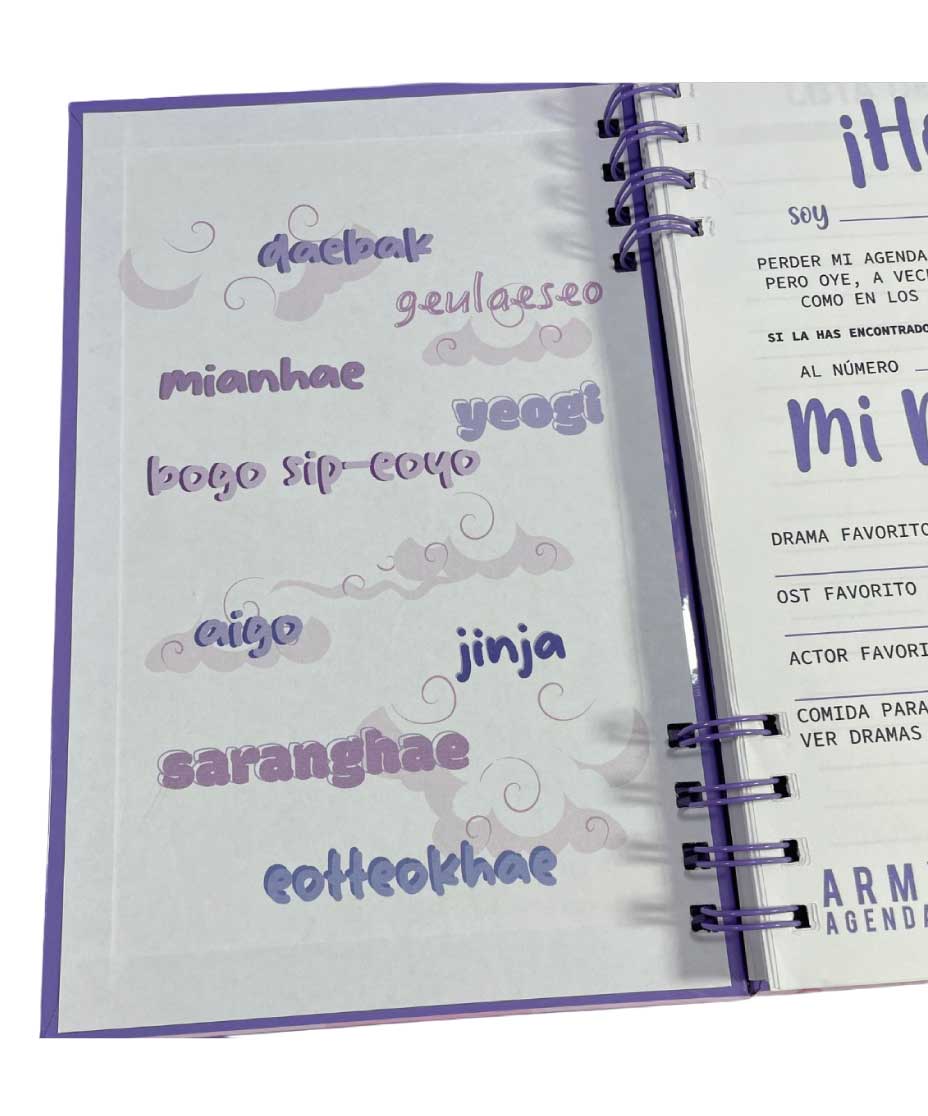 daebak
geulaeseo
mianhae
yeogi
bogo sip-eoyo
aigo
jinja
saranghae
eotteokhae
soy
PERDER MI AGENDA
PERO OYE, A
COMO EN LOS
SI LA HAS ENCONTRADO
AL NÚMERO
mi
DRAMA FAVORITO
OST FAVORITO
ACTOR
COMIDA PARA
VER DRAMAS